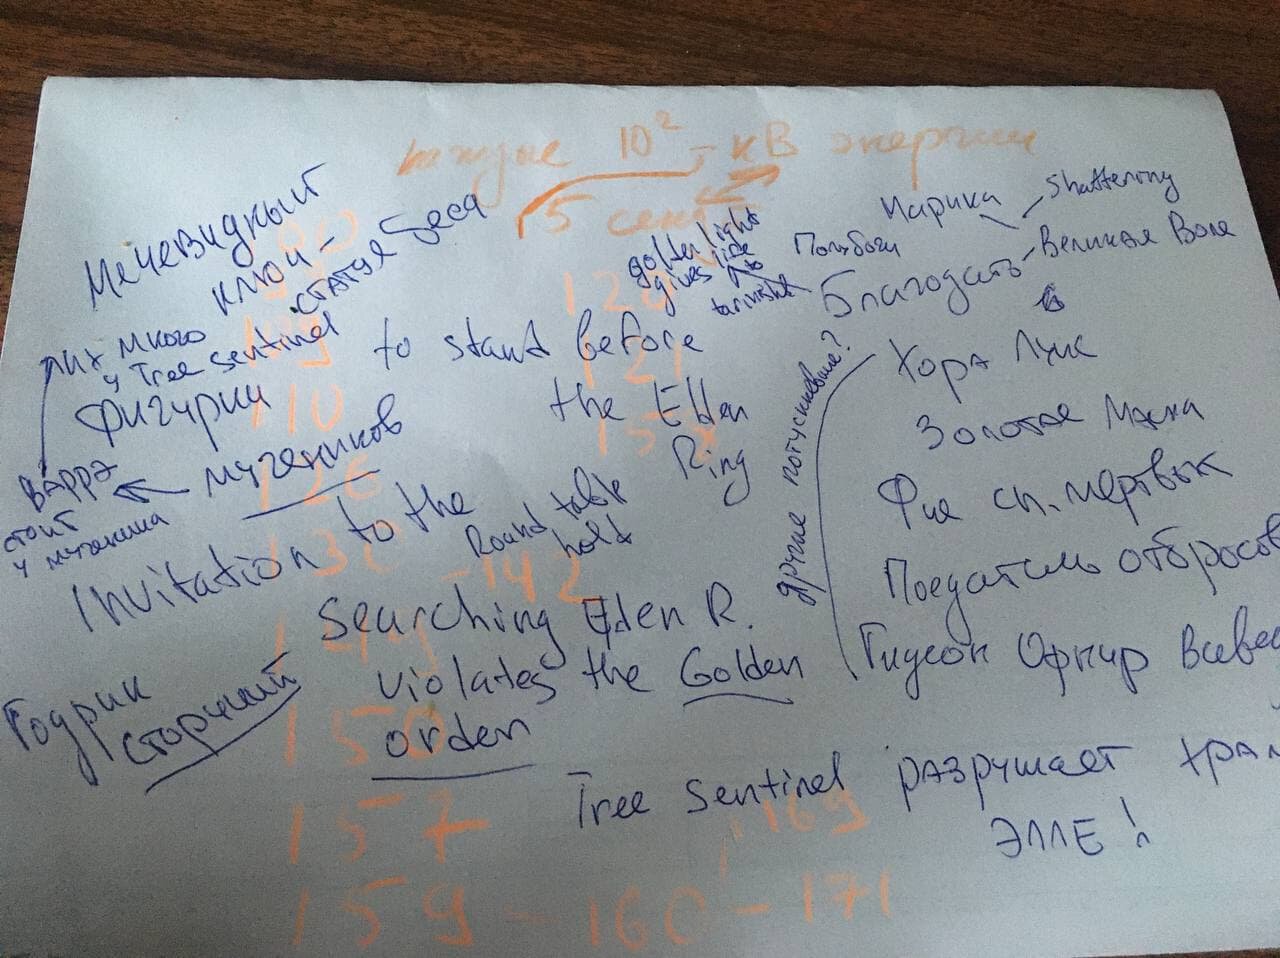 каждые 10² - кВ энергии
5 сек
Мечевидный
ключ -
статуя беса
них много
у Tree sentinel
Фигурки
мучеников
Варрэ
стоит
у мученика
to stand before
the Elden
Ring
golden light
gives life
to
tarnished
Марика
Shattering
Полубоги
Великая Воля
Благодать
Хора Лукс
Золотая Маска
Фие сп. мертвых
Поедатель отбросов
Гидеон Офнир Всевед
другие потускневшие?
Invitation to the
Round table
hold
Searching Elden R.
violates the Golden
orden
Годрик
сторукий
Tree sentinel разрушает храм
ЭЛЛЕ!
110
126
130 - 142
150
157
169
159 - 160 - 171
121